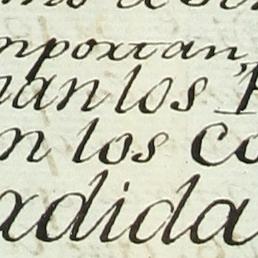 mportan,
nan los
n los co
adida